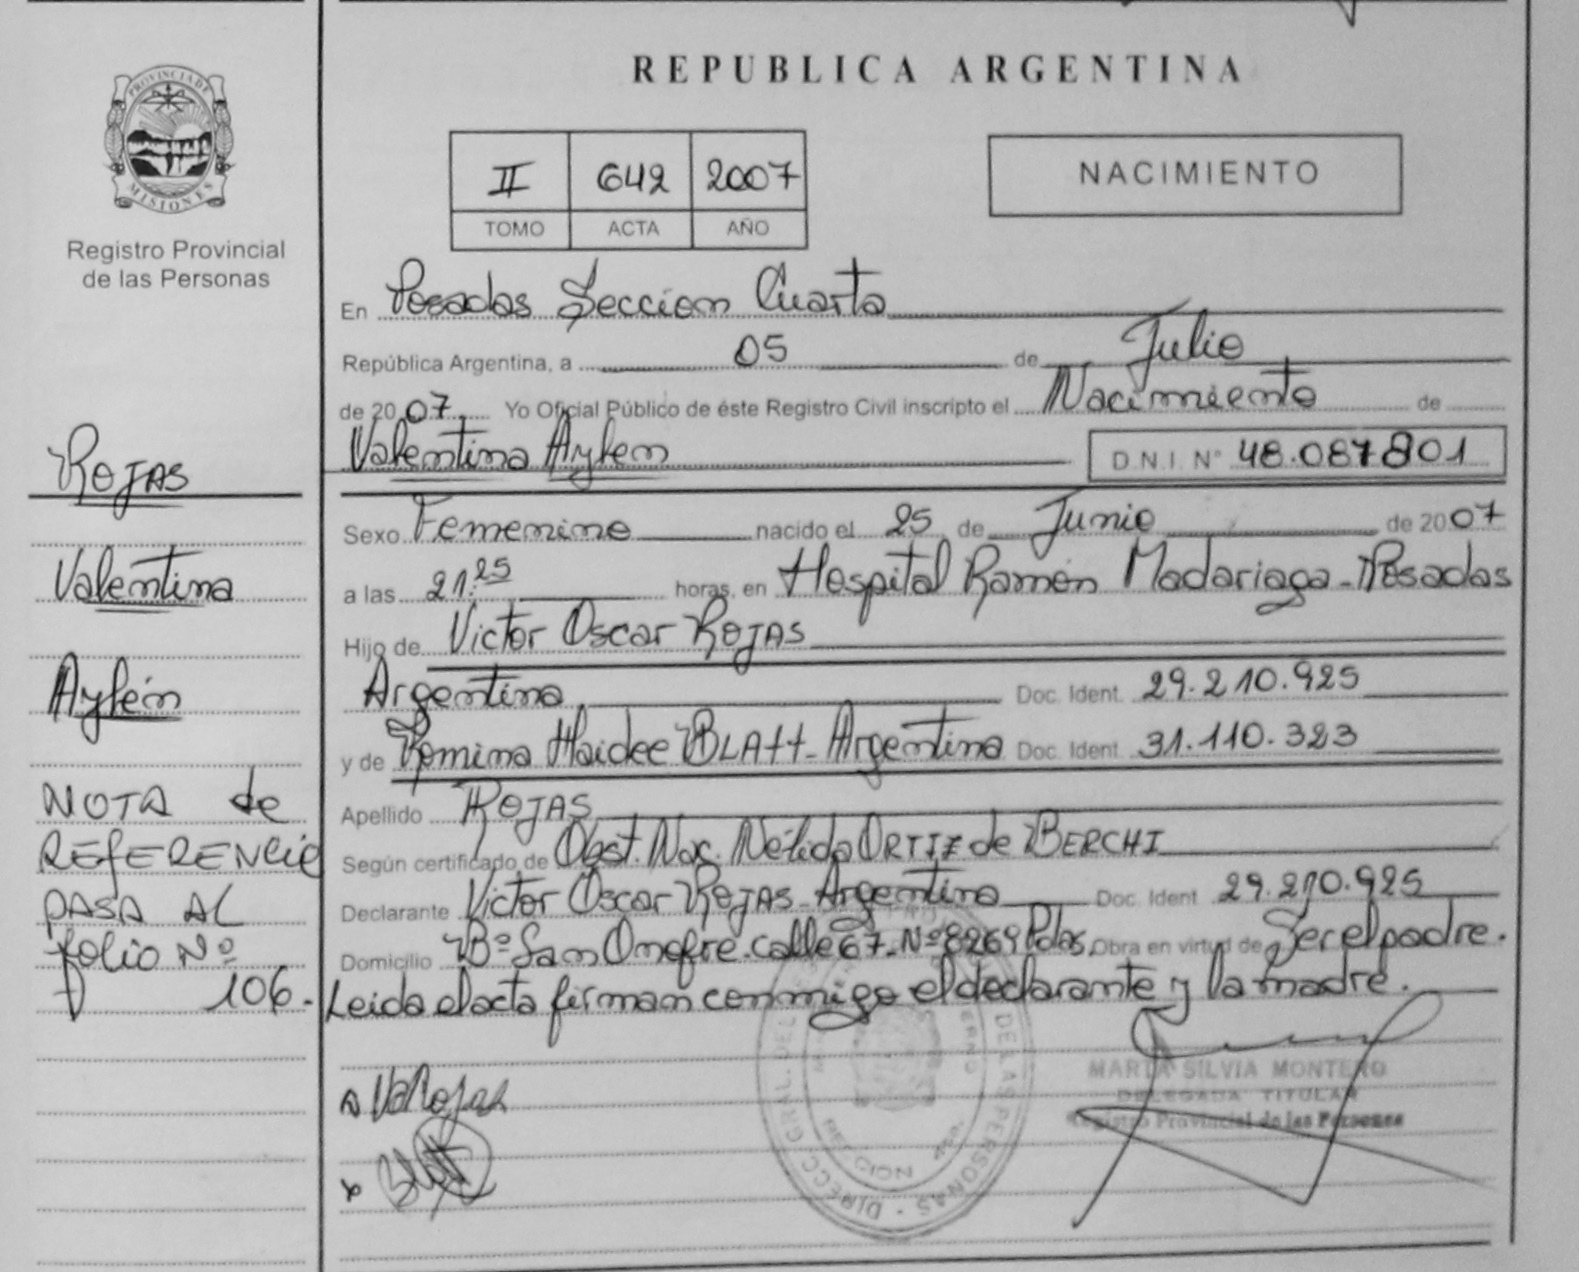 REPUBLICA ARGENTINA
PROVINCIA DE
MISIONES
Registro Provincial
de las Personas
II 642 2007
TOMO ACTA AÑO
NACIMIENTO
En Posadas Seccion Cuarta
República Argentina, a 05 de Julio
de 2007. Yo Oficial Público de éste Registro Civil inscripto el Nacimiento de
Valentina Aylen D.N.I. N° 48.087801
Sexo Femenino nacido el 25 de Junio de 2007
a las 21:25 horas, en Hospital Ramón Madariaga - Posadas
Hijo de Victor Oscar ROJAS
Argentina Doc. Ident. 29.210.925
y de Romina Haidee BLATT - Argentina Doc. Ident. 31.110.323
Apellido ROJAS
Según certificado de Obst. Nac. Nélida ORTIZ de BERCHI
Declarante Victor Oscar ROJAS - Argentino Doc. Ident 29.210.925
Domicilio Bº San Onofre. calle 67. Nº 8269 Pdas. Obra en virtud de Ser el padre.
Leida el acta firman conmigo el declarante y la madre.
ROJAS
Valentina
Aylén
NOTA de
REFERENCIA
PASA AL
folio Nº
106.
MARIA SILVIA MONTERO
DELEGADA TITULAR
Registro Provincial de las Personas